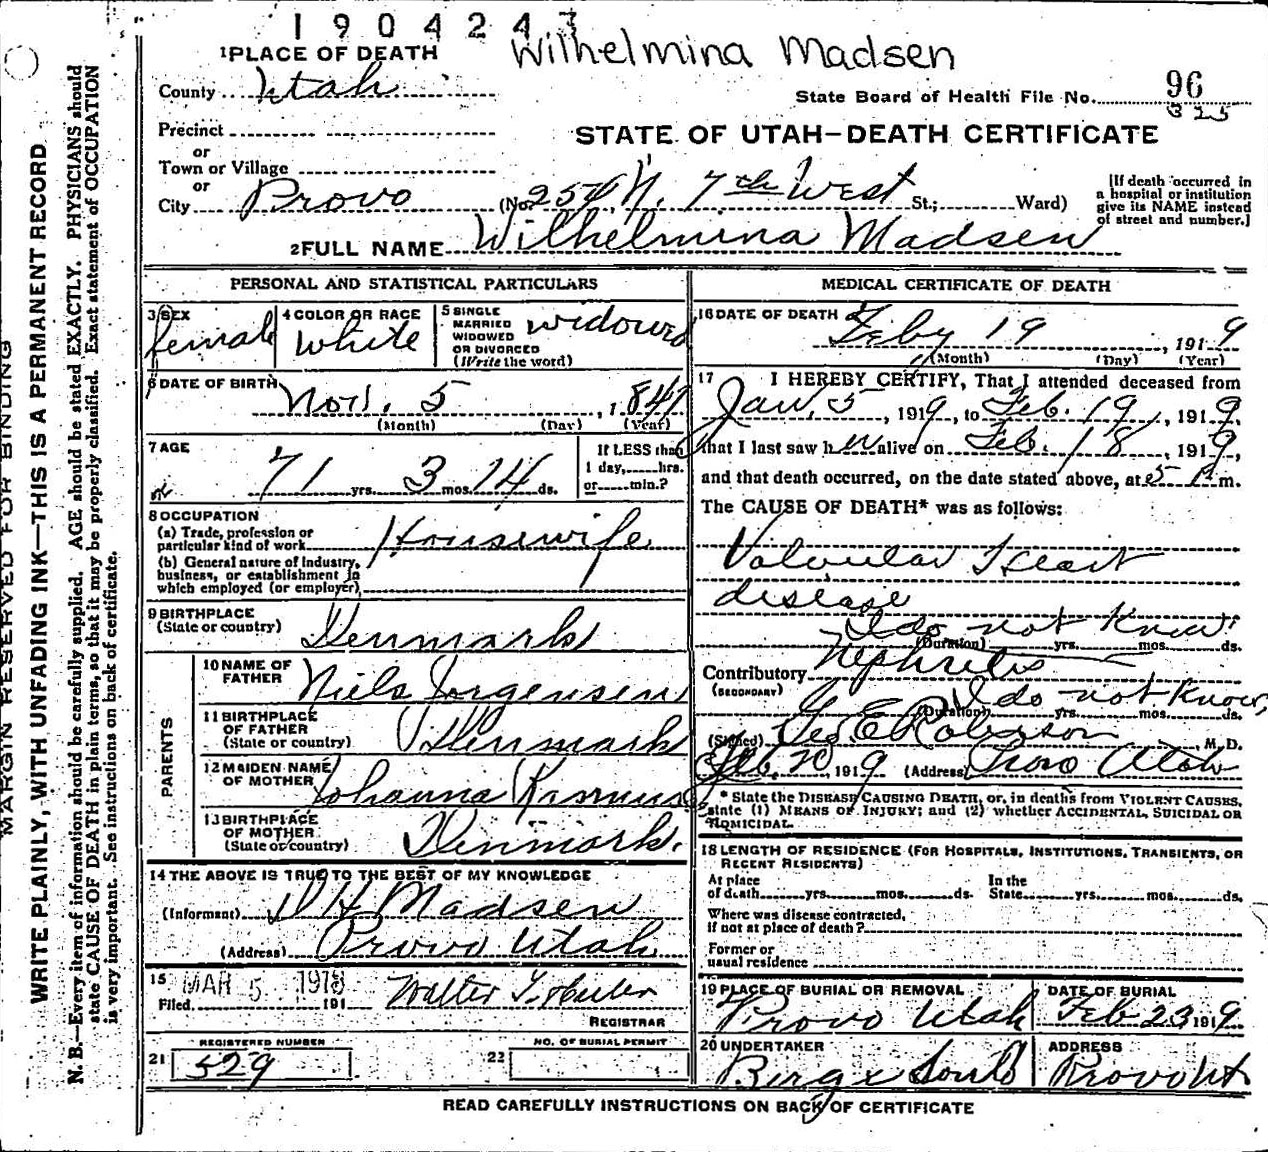 1904243
Wilhelmina Madsen
1 PLACE OF DEATH
County Utah
State Board of Health File No. 96
325
Precinct
STATE OF UTAH—DEATH CERTIFICATE
or
Town or Village
or
City Provo (No. 254 N. 7th West St.; Ward)
[If death occurred in
a hospital or institution
give its NAME instead
of street and number.]
2 FULL NAME Wilhelmina Madsen
PERSONAL AND STATISTICAL PARTICULARS
3 SEX
female
4 COLOR OR RACE
White
5 SINGLE
MARRIED
WIDOWED
OR DIVORCED
(Write the word)
widowed
6 DATE OF BIRTH
Nov. 5, 1847
(Month) (Day) (Year)
7 AGE
71 yrs. 3 mos. 14 ds.
If LESS than
1 day, hrs.
or min.?
8 OCCUPATION
(a) Trade, profession or
particular kind of work Housewife
(b) General nature of industry,
business, or establishment in
which employed (or employer)
9 BIRTHPLACE
(State or country) Denmark
PARENTS
10 NAME OF
FATHER Niels Jorgensen
11 BIRTHPLACE
OF FATHER
(State or country) Denmark
12 MAIDEN NAME
OF MOTHER Johanna
13 BIRTHPLACE
OF MOTHER
(State or country) Denmark.
14 THE ABOVE IS TRUE TO THE BEST OF MY KNOWLEDGE
(Informant) D H Madsen
(Address) Provo Utah
15 MAR 5 1919
Filed 191
Walter T.
REGISTRAR
REGISTERED NUMBER
21 529
NO. OF BURIAL PERMIT
22
MEDICAL CERTIFICATE OF DEATH
16 DATE OF DEATH
Feby 19, 1919
(Month) (Day) (Year)
17 I HEREBY CERTIFY, That I attended deceased from
Jan. 5, 1919, to Feb. 19, 1919,
that I last saw her alive on Feb. 18, 1919,
and that death occurred, on the date stated above, at 5 P m.
The CAUSE OF DEATH* was as follows:
Valvular Heart
disease
I do not know
(Duration) yrs. mos. ds.
Contributory Nephritis
(SECONDARY)
I do not know,
(Duration) yrs. mos. ds.
(Signed) Geo E Roberson, M. D.
Feb. 20, 1919 (Address) Provo Utah
* State the DISEASE CAUSING DEATH, or, in deaths from VIOLENT CAUSES,
state (1) MEANS OF INJURY; and (2) whether ACCIDENTAL, SUICIDAL OR
HOMICIDAL.
18 LENGTH OF RESIDENCE (FOR HOSPITALS, INSTITUTIONS, TRANSIENTS, OR
RECENT RESIDENTS)
At place
of death yrs. mos. ds.
In the
State yrs. mos. ds.
Where was disease contracted,
if not at place of death?
Former or
usual residence
19 PLACE OF BURIAL OR REMOVAL
Provo Utah
DATE OF BURIAL
Feb 23 1919
20 UNDERTAKER
ADDRESS
Provo Ut
READ CAREFULLY INSTRUCTIONS ON BACK OF CERTIFICATE
MARGIN RESERVED FOR BINDING
WRITE PLAINLY, WITH UNFADING INK—THIS IS A PERMANENT RECORD
N. B.—Every item of information should be carefully supplied. AGE should be stated EXACTLY. PHYSICIANS should
state CAUSE OF DEATH in plain terms, so that it may be properly classified. Exact statement of OCCUPATION
is very important. See instructions on back of certificate.